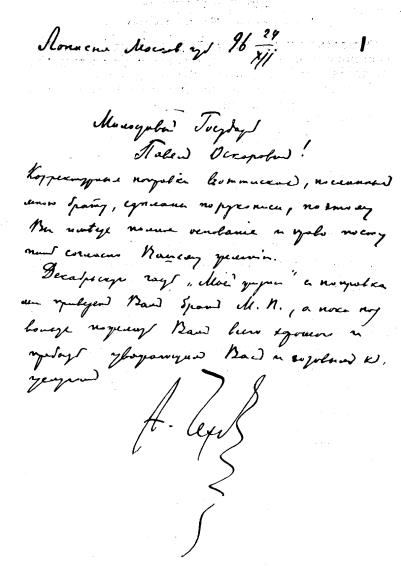 Лопасня Москов. губ 96 24/XII 1
Милостивый Государь
Павел Оскарович!
Корректурные поправки в оттисках, посланных
мною брату, сделаны по рукописи, поэтому
Вы имеете полное основание и право посту
пить согласно Вашему
Декабрьскую „Моей жизни" с поправка
ми привезет Вам брат М. П., а пока поз
вольте пожелать Вам всего хорошего и
пребыть уважающим Вас и готовым к
услугам
А. Чехов